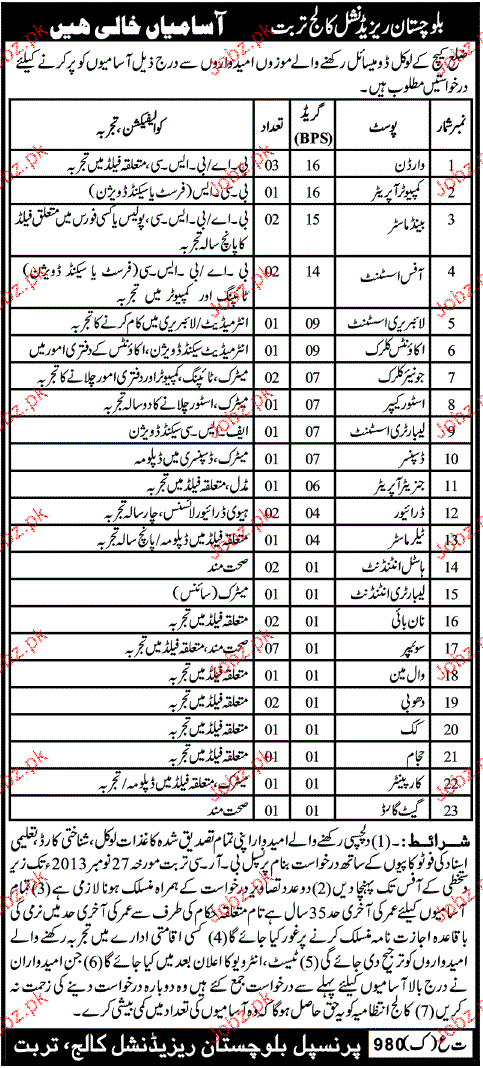 بلوچستان ریزیڈنشل کالج تربت آسامیاں خالی ھیں
ضلع کیچ کے لوکل ڈومیسائل رکھنے والے موزوں امیدواروں سے درج ذیل آسامیوں کو پر کرنے کیلئے
درخواستیں مطلوب ہیں۔
نمبر شمار پوسٹ گریڈ (BPS) تعداد کوالیفکیشن، تجربہ
1 وارڈن 16 03 بی۔اے/بی۔ایس۔سی، متعلقہ فیلڈ میں تجربہ
2 کمپیوٹر آپریٹر 16 01 بی۔سی۔ایس (فرسٹ یا سیکنڈ ڈویژن)
3 بینڈ ماسٹر 15 02 بی۔اے/بی۔ایس۔سی، پولیس یا کسی فورس میں متعلق فیلڈ
کا پانچ سالہ تجربہ
4 آفس اسسٹنٹ 14 02 بی۔اے/بی۔ایس۔سی (فرسٹ یا سیکنڈ ڈویژن)
ٹائپنگ اور کمپیوٹر میں تجربہ
5 لائبریری اسسٹنٹ 09 01 انٹرمیڈیٹ/لائبریری میں کام کرنے کا تجربہ
6 اکاؤنٹس کلرک 09 01 انٹرمیڈیٹ سیکنڈ ڈویژن، اکاؤنٹس کے دفتری امور میں
7 جونیئر کلرک 07 02 میٹرک، ٹائپنگ، کمپیوٹر اور دفتری امور چلانے کا تجربہ
8 اسٹور کیپر 07 01 میٹرک، اسٹور چلانے کا دو سالہ تجربہ
9 لیبارٹری اسسٹنٹ 07 01 ایف۔ایس۔سی سیکنڈ ڈویژن
10 ڈسپنسر 07 01 میٹرک، ڈسپنسری میں ڈپلومہ
11 جنریٹر آپریٹر 06 01 مڈل، متعلقہ فیلڈ میں تجربہ
12 ڈرائیور 04 02 ہیوی ڈرائیور لائسنس، چار سالہ تجربہ
13 ٹیلر ماسٹر 04 01 متعلقہ فیلڈ میں ڈپلومہ/پانچ سالہ تجربہ
14 ہاسٹل اٹنڈنٹ 01 02 صحت مند
15 لیبارٹری اٹنڈنٹ 01 01 میٹرک (سائنس)
16 نان بائی 01 02 متعلقہ فیلڈ میں تجربہ
17 سوئیپر 01 07 صحت مند، متعلقہ فیلڈ میں تجربہ
18 وال مین 01 01 متعلقہ فیلڈ میں تجربہ
19 دھوبی 01 02 متعلقہ فیلڈ میں تجربہ
20 کک 01 01 متعلقہ فیلڈ میں تجربہ
21 حجام 01 01 متعلقہ فیلڈ میں تجربہ
22 کارپینٹر 01 01 میٹرک، متعلقہ فیلڈ میں ڈپلومہ/تجربہ
23 گیٹ گارڈ 01 01 صحت مند
شرائط:۔ (1) دلچسپی رکھنے والے امیدوار اپنی تمام تصدیق شدہ کاغذات لوکل، شناختی کارڈ، تعلیمی
اسناد کی فوٹو کاپیوں کے ساتھ درخواست بنام پرنسپل بی۔آر۔سی تربت مورخہ 27 نومبر 2013ء تک زیر
دستخطی کے آفس تک پہنچا دیں (2) دو عدد تصاویر درخواست کے ہمراہ منسلک ہونا لازمی ہے (3) تمام
آسامیوں کیلئے عمر کی آخری حد 35 سال ہے تاہم متعلقہ حکام کی طرف سے عمر کی آخری حد میں نرمی کی
باقاعدہ اجازت نامہ منسلک کرنے پر غور کیا جائے گا (4) کسی اقامتی ادارے میں تجربہ رکھنے والے
امیدواروں کو ترجیح دی جائے گی (5) ٹیسٹ، انٹرویو کا اعلان بعد میں کیا جائے گا (6) جن امیدواران
نے درج بالا آسامیوں کیلئے پہلے سے درخواست جمع کئے ہیں وہ دوبارہ درخواست دینے کی زحمت نہ
کریں (7) کالج انتظامیہ کو یہ حق حاصل ہوگا کہ وہ آسامیوں کی تعداد میں کمی بیشی کرے۔
پرنسپل بلوچستان ریزیڈنشل کالج، تربت ت ع (ک) 980
Jobz.pk